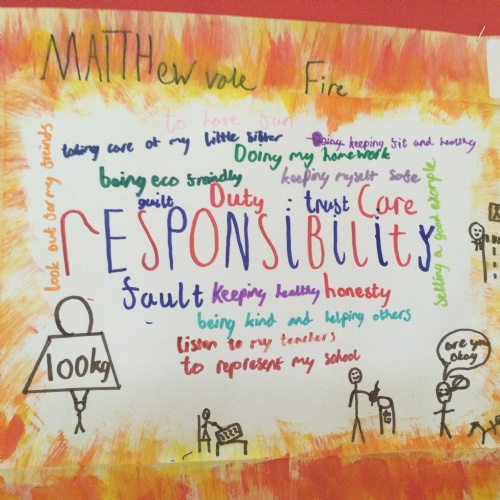 MATTHew vale Fire
to have fun
taking care of my little sister
Doing keeping fit and healthy
Doing my homework
being eco friendly
keeping myself safe
guilt
Duty
trust
Care
look out for my friends
rESPONSiBilitY
Setting a good example
fault
Keeping healthy
honesty
being kind and helping others
listen to my teachers
to represent my school
100kg
are you
okay